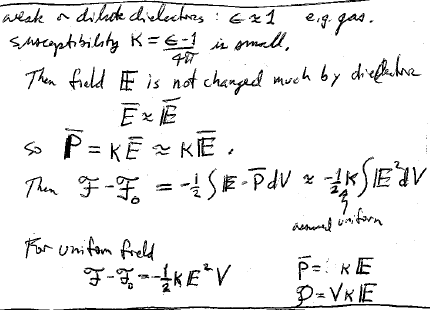 weak or dilute dielectrics : ϵ ≈ 1 e.g. gas.
susceptibility κ = (ϵ-1)/4π is small.
Then field 𝔼 is not changed much by dielectric
Ē ≈ 𝔼
so P̄ = κĒ ≈ κ𝔼 .
Then ℱ-ℱ₀ = -½ ∫ 𝔼 · P̄ dV ≈ -½ κ ∫ 𝔼² dV
assumed uniform
For uniform field
ℱ-ℱ₀ = -½ κ E² V
P̄ = κ𝔼
𝒫 = Vκ𝔼